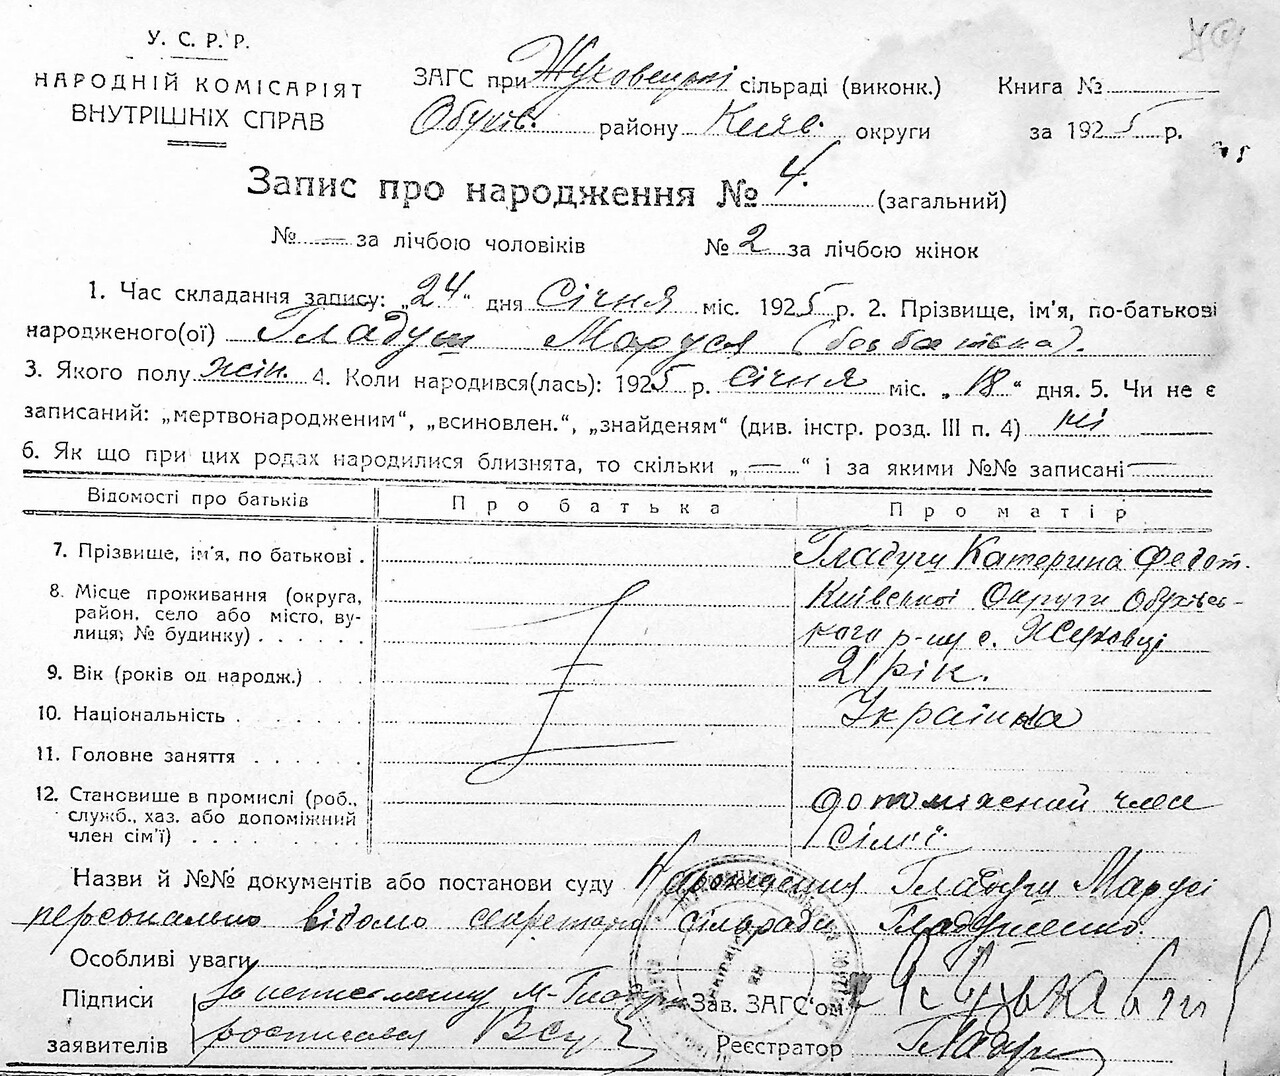 У. С. Р. Р.
НАРОДНІЙ КОМІСАРІЯТ
ВНУТРІШНІХ СПРАВ
ЗАГС при Жуковецькі сільраді (виконк.) Книга №
Обухів. району Київ. округи за 1925 р.
Запис про народження № 4. (загальний)
№ — за лічбою чоловіків № 2 за лічбою жінок
1. Час складання запису: „24“ дня Січня міс. 1925 р. 2. Прізвище, ім'я, по-батькові
народженого(ої) Гладуш Маруся (без батька).
3. Якого полу жін. 4. Коли народився(лась): 1925 р. Січня міс. „18“ дня. 5. Чи не є
записаний: „мертвонародженим“, „всиновлен.“, „знайденям“ (див. інстр. розд. III п. 4) ні
6. Як що при цих родах народилися близнята, то скільки „—“ і за якими №№ записані —
Відомості про батьків Про батька Про матір
7. Прізвище, ім'я, по батькові . Гладуш Катерина Федот.
8. Місце проживання (округа, район, село або місто, вулиця; № будинку) . . . . . Київської Округи Обухівсь-
кого р-ну с. Жуковці
9. Вік (років од народж.) . . . 21 рік.
10. Національність . . . . . . Українка
11. Головне заняття . . . . . .
12. Становише в промислі (роб., служб., хаз. або допоміжний член сім'ї) . . . . . . допоміжний член
сім'ї.
Назви й №№ документів або постанови суду Народження Гладуш Марусі
персонально відомо секретарю сільради Гладушенко.
Особливі уваги
Підписи
заявителів
М. Гладуш
росписався
Зав. ЗАГС'ом
Реєстратор Гладуш